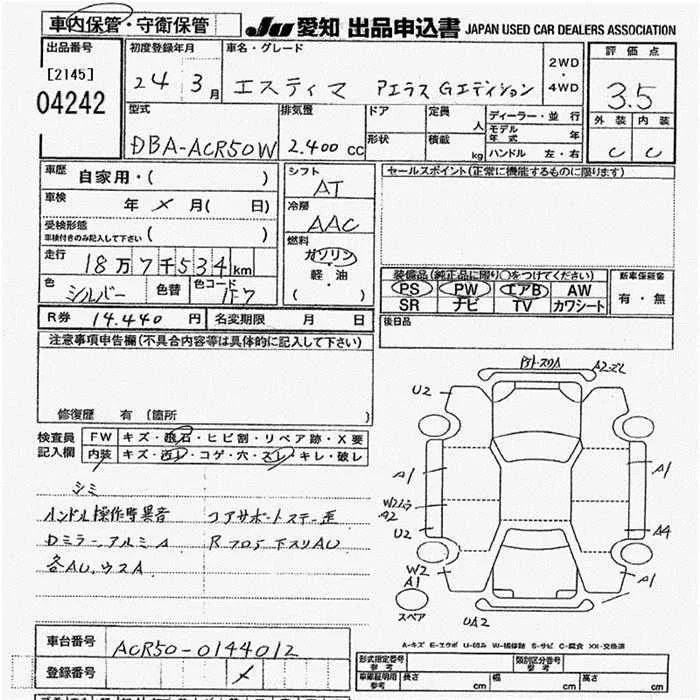 車内保管・守衛保管 JU 愛知 出品申込書 JAPAN USED CAR DEALERS ASSOCIATION
出品番号 初度登録年月 車名・グレード 2WD・4WD 評価点
[2145] 24 3月 エスティマ アエラス Gエディション 3.5
04242
型式 排気量 ドア 定員 人 ディーラー・並行 外装 内装
DBA-ACR50W 2.400 CC 形状 積載 kg モデル年式 年 C C
ハンドル 左・右
車歴 自家用・( ) シフト AT セールスポイント(正常に機能するものに限ります)
車検 年 × 月( 日) 冷房 AAC
受検形態 車検付きのみ記入して下さい ( ) 燃料
走行 18万7千534km ガソリン・軽・油 ( )
装備品(純正品に限り○をつけてください) 新車保証書
色 シルバー 色替 色コード 1F7 PS PW エアB AW 有・無
SR ナビ TV カワシート
R券 14.440 円 名変期限 月 日 後日品
注意事項申告欄(不具合内容等は具体的に記入して下さい)
修復歴 有 (箇所 )
検査員記入欄 FW キズ・飛石・ヒビ割・リペア跡・X要
内装 キズ・汚レ・コゲ・穴・スレ・キレ・破レ
シミ
ハンドル操作時異音 コアサポートステー歪
Dミラーアルミ A R フロア下スリAU
各AU.ウスA
A2-ズレ
U2
A1 A1
W2ムラ
A2
U2 A4
W2 A1
A1
スペア
UA2
A-キズ E-エクボ U-凹み W-補修跡 S-サビ C-腐食 XX-交換済
車台番号 ACR50-0144012
登録番号 ×
型式指定番号 参考 類別区分番号 参考
車庫証明用 参考 長さ cm 幅 cm 高さ cm